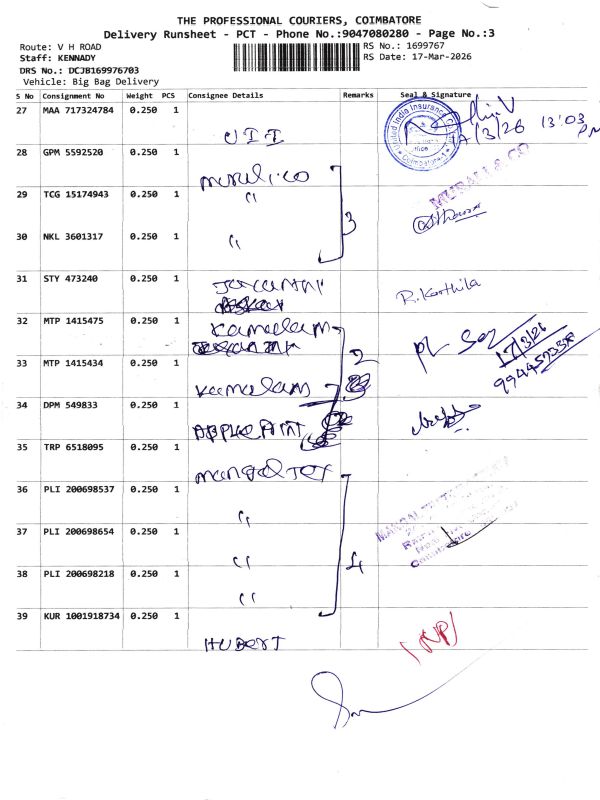 THE PROFESSIONAL COURIERS, COIMBATORE
Delivery Runsheet - PCT - Phone No.:9047080280 - Page No.:3
Route: V H ROAD
RS No.: 1699767
Staff: KENNADY
RS Date: 17-Mar-2026
DRS No.: DCJB169976703
Vehicle: Big Bag Delivery
S No Consignment No Weight PCS Consignee Details Remarks Seal & Signature
27 MAA 717324784 0.250 1
UII
United India Insurance Co.
Coimbatore
13:03 PM
28 GPM 5592520 0.250 1
murali.co
29 TCG 15174943 0.250 1
"
MURALI & CO
30 NKL 3601317 0.250 1
"
3
31 STY 473240 0.250 1
R. Karthila
32 MTP 1415475 0.250 1
kamalam
2
17/3/26
33 MTP 1415434 0.250 1
kamalam
34 DPM 549833 0.250 1
APPLE PAINT
35 TRP 6518095 0.250 1
36 PLI 200698537 0.250 1
"
37 PLI 200698654 0.250 1
"
4
38 PLI 200698218 0.250 1
"
39 KUR 1001918734 0.250 1
HUBERT